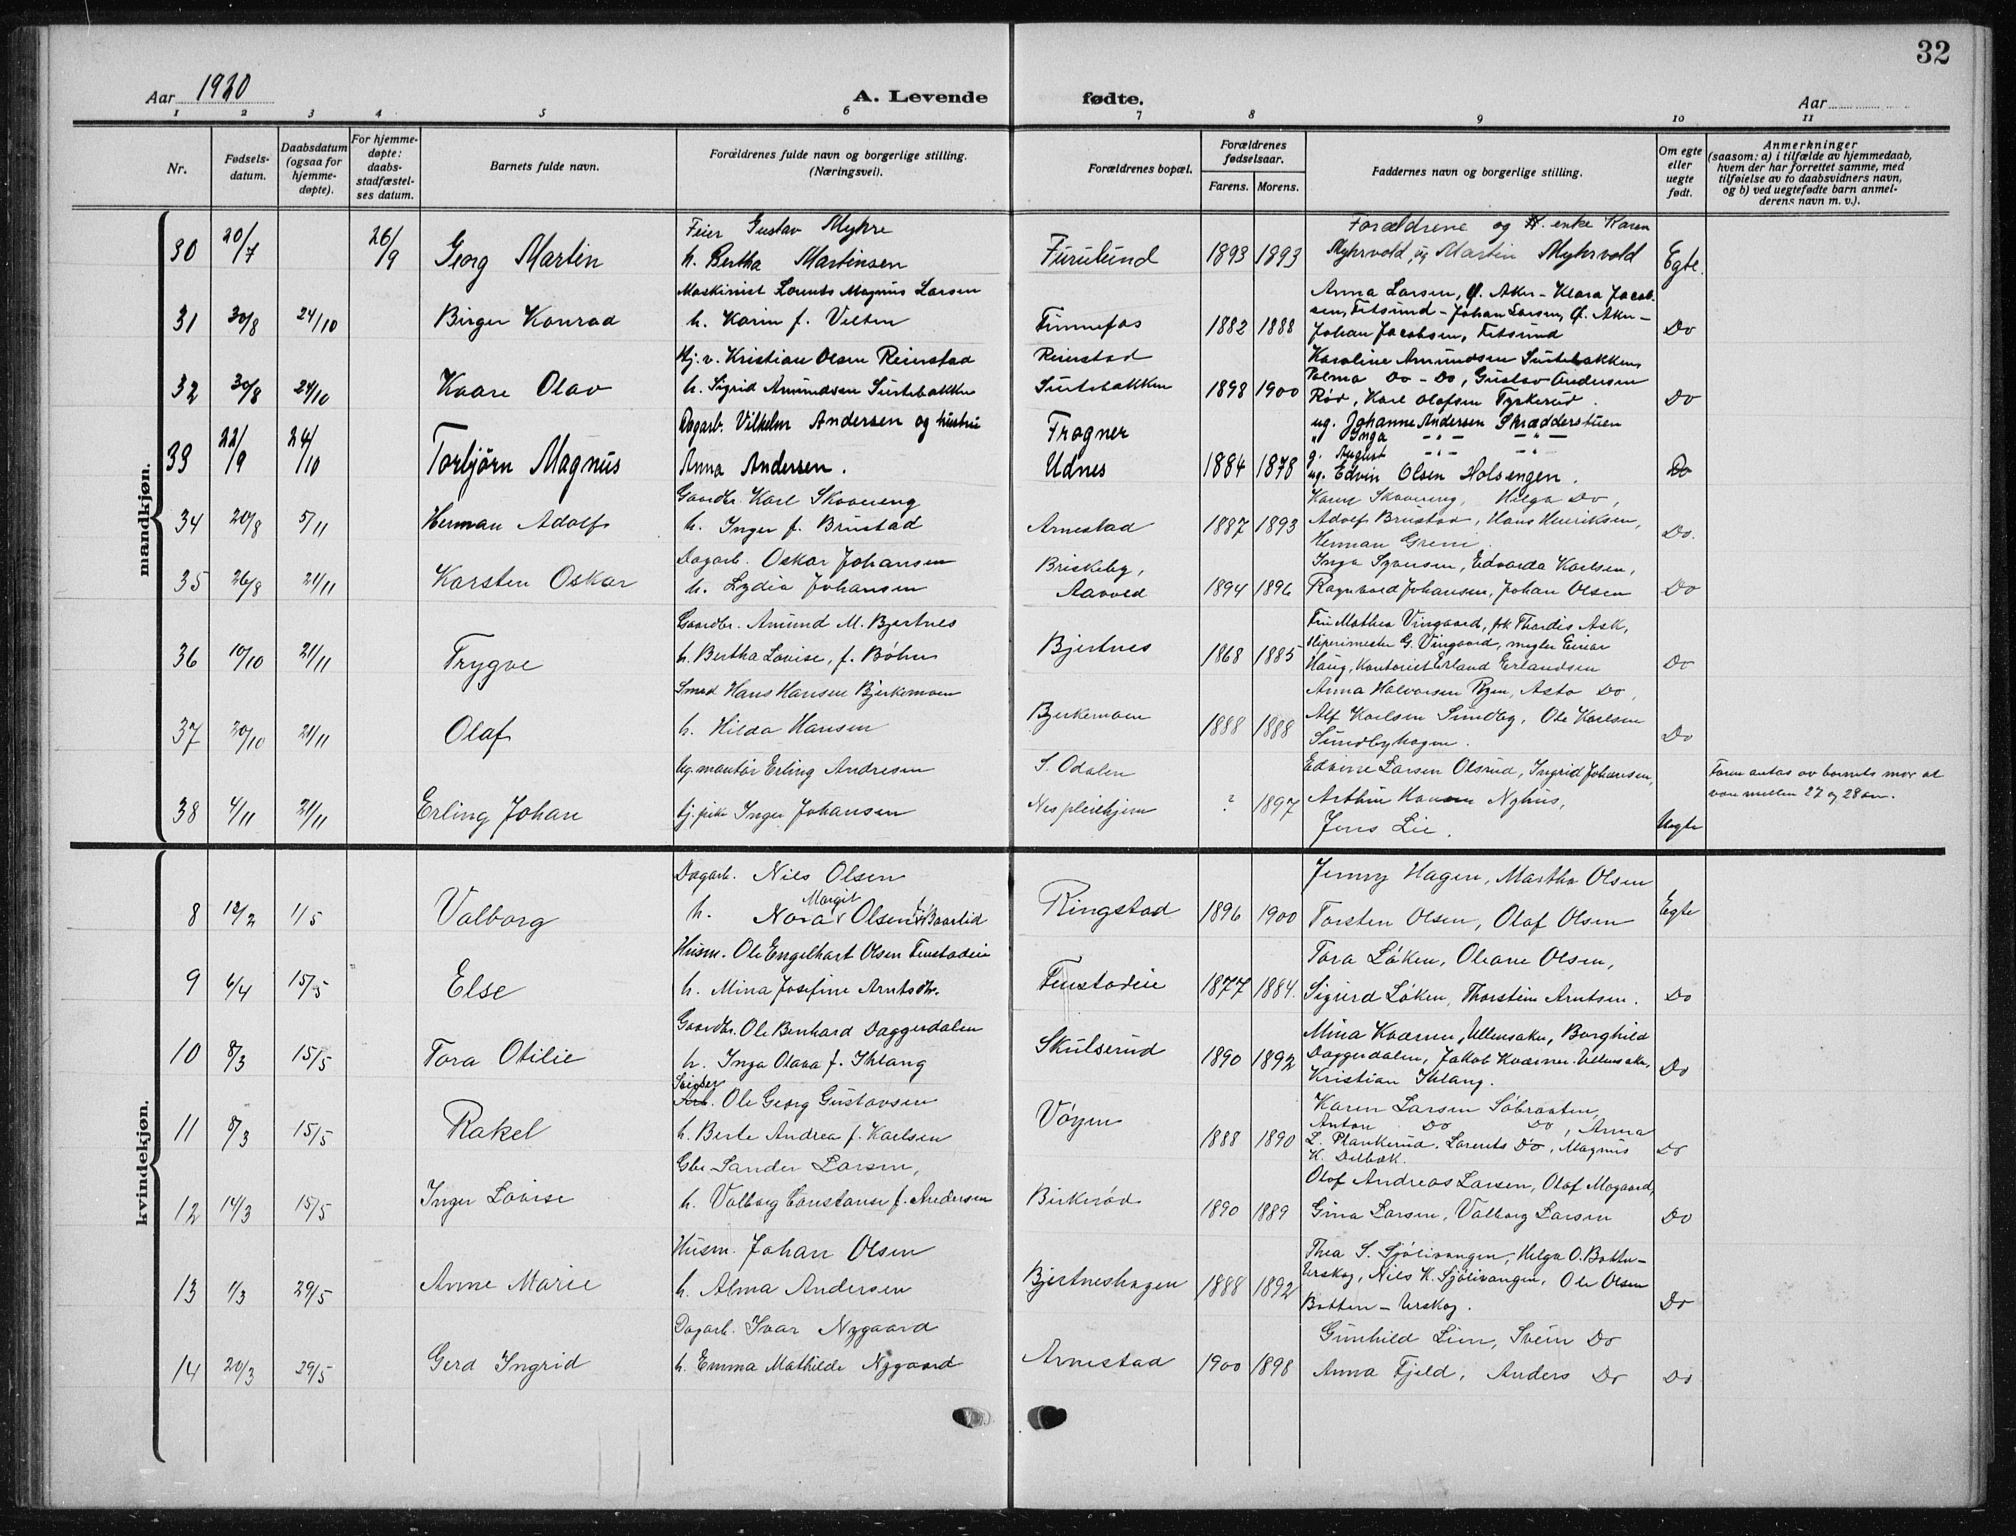 32
Aar 1920
A. Levende fødte.
Aar
1 2 3 4 5 6 7 8 9 10 11
Nr.
Fødsels-
datum.
Daabsdatum
(ogsaa for
hjemme-
døpte).
For hjemme-
døpte:
daabs-
stadfæstel-
ses datum.
Barnets fulde navn.
Forældrenes fulde navn og borgerlige stilling.
(Næringsvei).
Forældrenes bopæl.
Forældrenes
fødselsaar.
Farens. Morens.
Faddernes navn og borgerlige stilling.
Om egte
eller
uegte
født.
Anmerkninger
(saasom: a) i tilfælde av hjemmedaab,
hvem der har forrettet samme, med
tilføielse av to daabsvidners navn,
og b) ved uegtefødte barn anmel-
derens navn m. v.).
mandkjøn.
Feier Gustav Myhre
Forældrene og enke Karen
30 20/7 26/9 Georg Martin h. Bertha Martinsen Furulund 1893 1893 Myhrvold, ug Martin Myhrvold Egte.
Maskinist Lorents Magnus Larsen
Anna Larsen, Ø. Aker - Klara Jacob-
31 30/8 24/10 Birger Konrad h. Karin f. Velten Finnefos 1882 1888 sen, Fetsund - Johan Larsen, Ø. Aker -
Johan Jacobsen, Fetsund Do
Kj. v. Kristian Olsen Reierstad Reierstad
Karoline Amundsen Surtebakken
32 30/8 24/10 Kaare Olav h. Sigrid Amundsen Surtebakken Surtebakken 1898 1900 Palma Do - Do, Gustav Andersen
Rød, Karl Olafsen Tyskerud. Do
Dagarb. Vilhelm Andersen og hustru Frogner
ug. Johanne Andersen Skrædderstuen
ug Inga -"- -"-
g. August -"- -"-
33 22/9 24/10 Torbjörn Magnus Anna Andersen. Udnes 1884 1878 ug. Edvin Olsen Holsengen. Do
Gaardbr. Karl Skovereng
Karen Skovereng, Helga Do,
34 20/8 5/11 Herman Adolf h. Inger f. Brustad Arnestad 1887 1893 Adolf Brustad, Hans Henriksen,
Herman Greni. Do.
Dagarb. Oskar Johansen Briskeby,
Inga Syversen, Edvarda Karlsen,
35 26/8 21/11 Karsten Oskar h. Lydia Johansen Aavold 1894 1896 Ragnvald Johansen, Johan Olsen Do
Gaardbr. Amund M. Bjertnes
Fru Mathea Vingaard, frk Thordis Ask,
36 10/10 21/11 Trygve h. Bertha Lovise, f. Bøhn Bjertnes 1868 1885 Sliperimester G. Vingaard, megler Einar
Haug, Kontorist Erland Erlandsen Do
Smed Hans Hansen Bjerkemoen
Anna Halvorsen Rgen, Asta Do,
37 20/10 21/11 Olaf h. Hilda Hansen Bjerkemoen 1888 1888 Alf Karlsen Sundby, Ole Karlsen
Sundbyhagen. Do
Ug. montör Erling Andresen S. Odalen
Edvine Larsen Olsrud, Ingrid Johansen,
38 4/11 21/11 Erling Johan tj. pike Inger Johansen Nes pleiehjem ? 1897 Arthur Hansen Nyhus,
Jens Lie. Uegte
Faren antas av barnets mor at
være mellem 27 og 28 aar.
kvindekjøn.
Dagarb. Nils Olsen
Jenny Hagen, Martha Olsen
8 12/2 1/5 Valborg h. Nora Margit Olsen f. Baarlid Ringstad 1896 1900 Torsten Olsen, Olaf Olsen Egte
Husm. Ole Engelhart Olsen Fenstadeie
Tora Løken, Oleane Olsen,
9 6/4 15/5 Else h. Mina Josefine Arntsdtr. Fenstadeie 1877 1884. Sigurd Løken, Thorstein Arntsen. Do
Gaardbr. Ole Benhard Daggerdalen
Mina Kværner, Ullensaker, Borghild
10 8/3 15/5 Tora Otilie h. Inga Olava f. Ihlang Skulserud 1890 1892 Daggerdalen, Jakob Kværner Ullensaker,
Kristian Ihlang. Do
Snedker
Arb. Ole Georg Gustavsen
Karen Larsen Söbraaten,
Anton Do Do, Anna
11 8/3 15/5 Rakel h. Berte Andrea f. Karlsen Vøyen 1888 1890 L. Plankerud, Lorents Do, Magnus
K. Delbæk. Do
Gbr. Sander Larsen,
Olaf Andreas Larsen, Olaf Mogaard,
12 14/3 15/5 Inger Lovise h. Valborg Constanse f. Andersen Birkerød 1890 1889 Gina Larsen, Valborg Larsen Do
Husm. Johan Olsen
Thea S. Sjölivangen, Helga O. Botten -
13 1/3 29/5 Anne Marie h. Alma Andersen Bjertneshagen 1888 1892 Urskog, Nils K. Sjölivangen, Ole Olsen
Botten - Urskog. Do
Dagarb. Ivar Nygaard
Gunhild Lien, Svein Do
14 20/3 29/5 Gerd Ingrid h. Emma Mathilde Nygaard Arnestad 1900 1898 Anna Fjeld, Anders Do Do